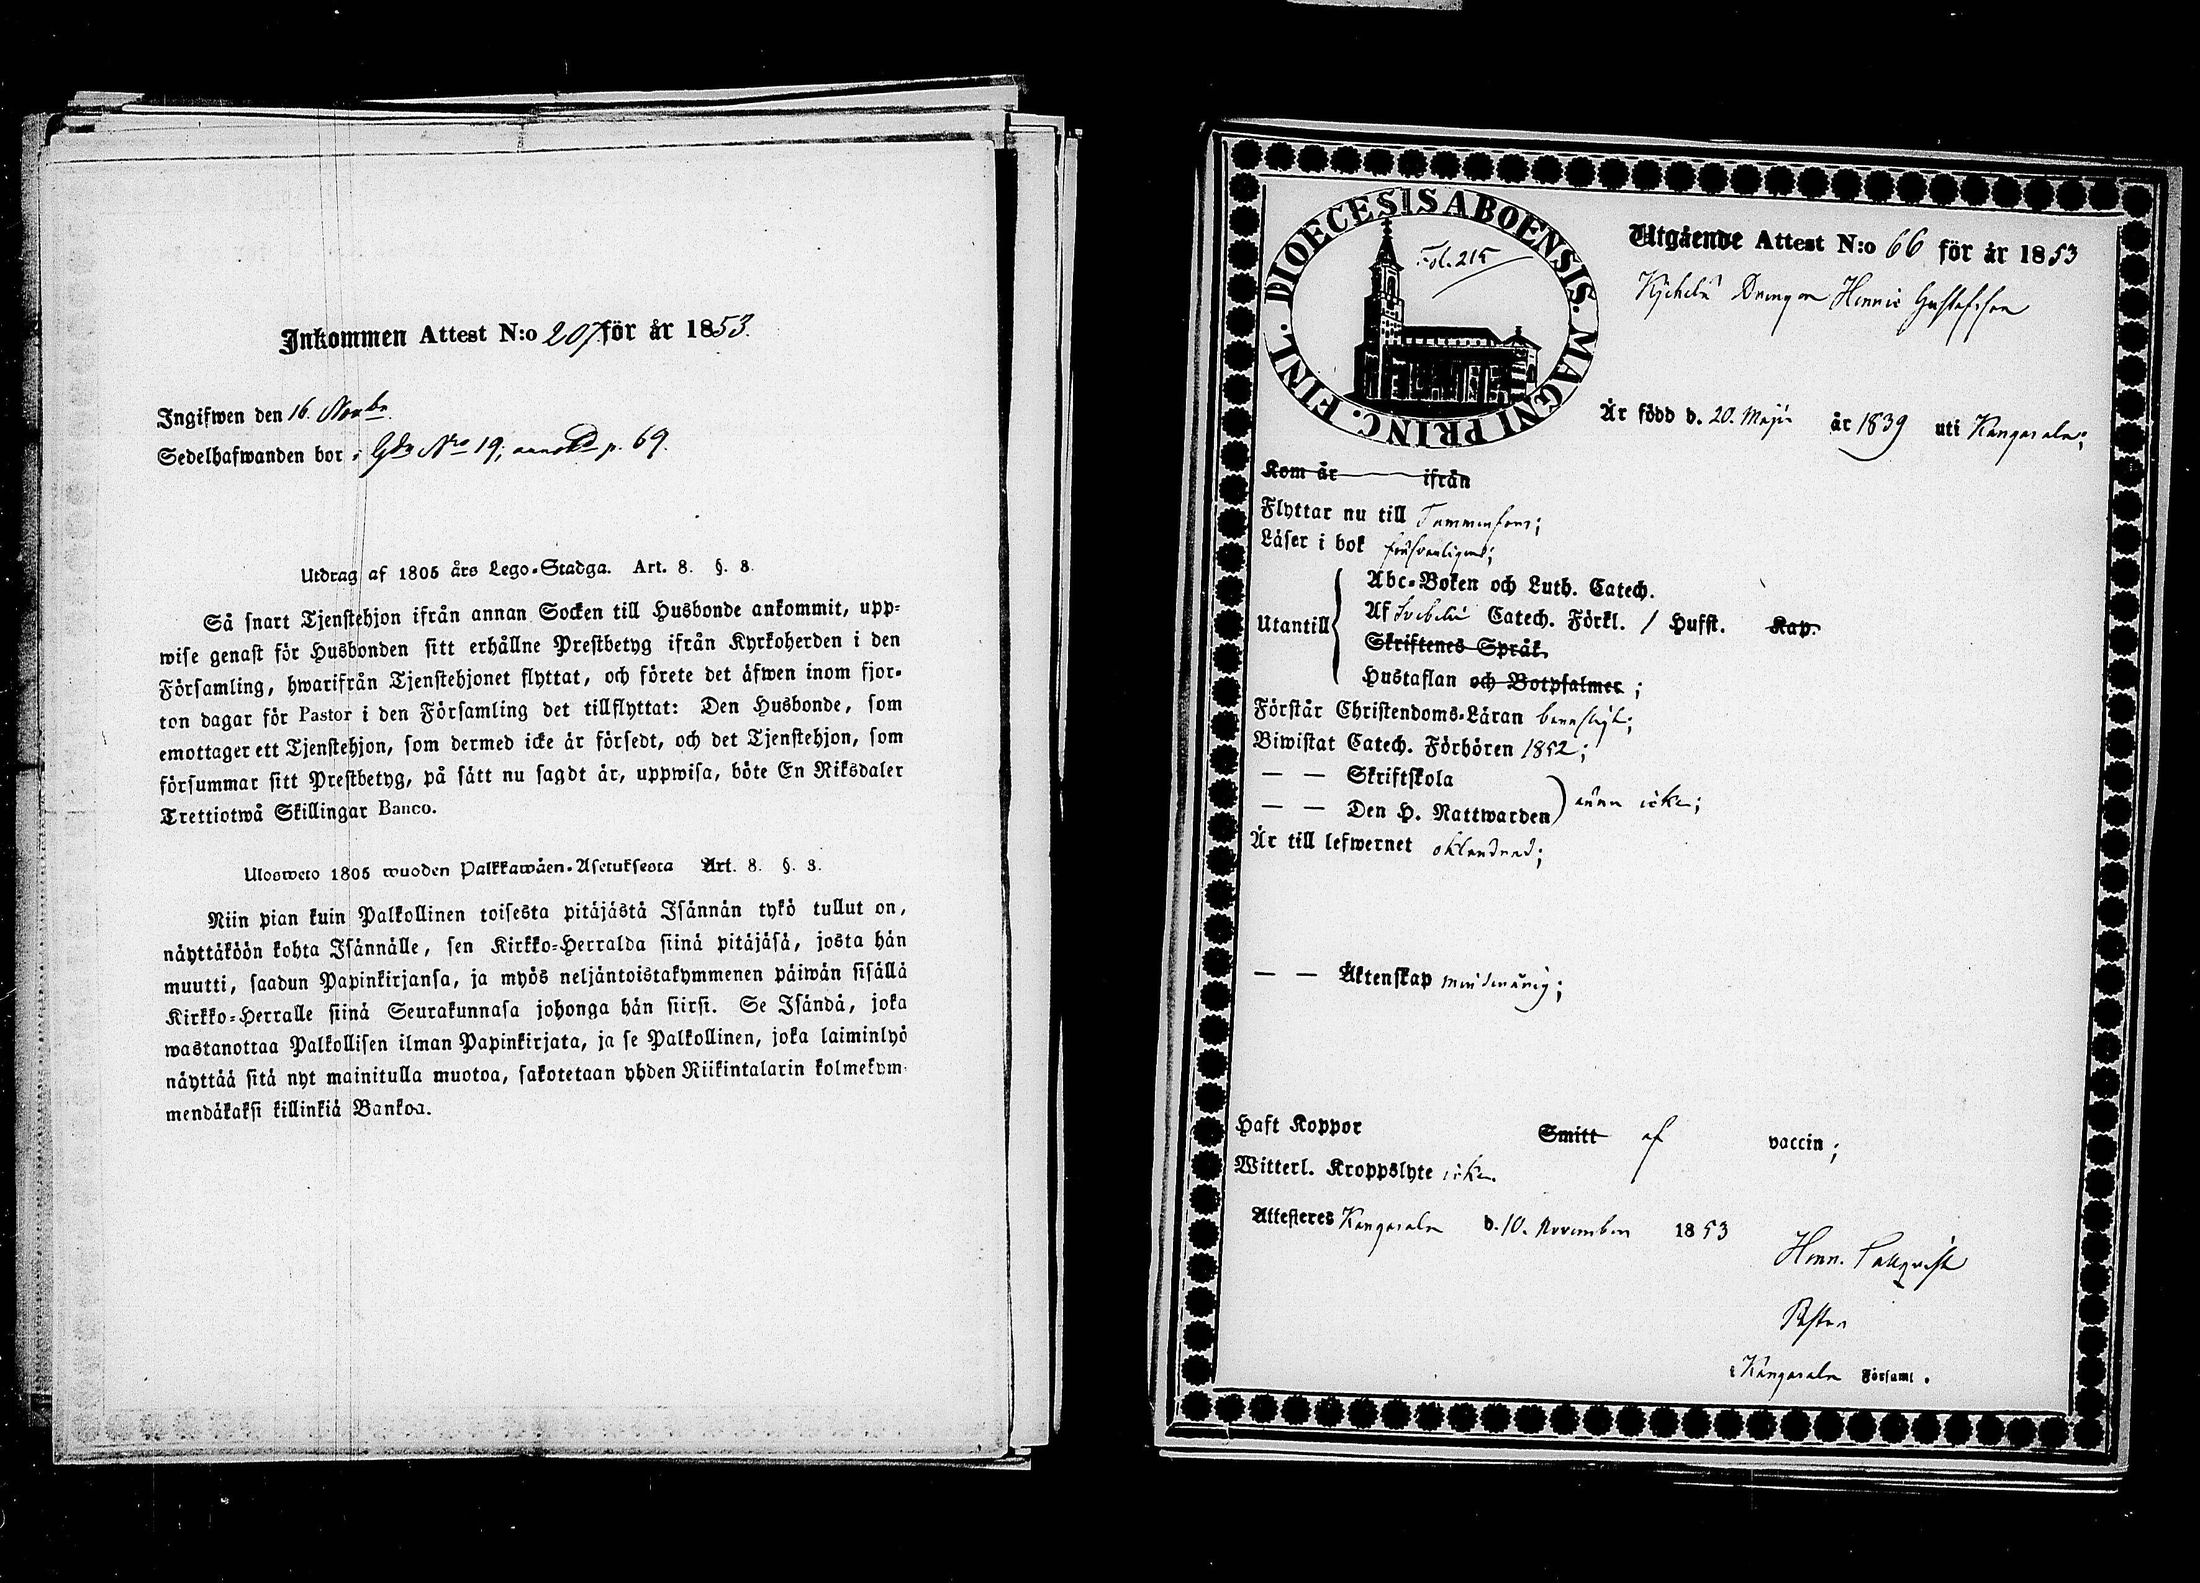 Inkommen Attest N:o 207 för år 1853.
Ingifwen den 16. Novbr.
Sedelhafwanden bor i Gdn Nro 19, p. 69.
Utdrag af 1805 års Lego-Stadga. Art. 8. §. 3.
Så snart Tjenstehjon ifrån annan Socken till Husbonde ankommit, upp-
wise genast för Husbonden sitt erhållne Prestbetyg ifrån Kyrkoherden i den
Församling, hwarifrån Tjenstehjonet flyttat, och förete det äfwen inom fjor-
ton dagar för Pastor i den Församling det tillflyttat: Den Husbonde, som
emottager ett Tjenstehjon, som dermed icke är försedt, och det Tjenstehjon, som
försummar sitt Prestbetyg, på sätt nu sagdt är, uppwisa, böte En Riksdaler
Trettiotwå Skillingar Banco.
Ulosweto 1805 wuoden Palkkawäen-Asetuksesta Art. 8. §. 3.
Niin pian kuin Palkollinen toisesta pitäjästä Isännän tykö tullut on,
näyttäköön kohta Isännälle, sen Kirkko-Herralda siinä pitäjäsä, josta hän
muutti, saadun Papinkirjansa, ja myös neljäntoistakymmenen päiwän sisällä
Kirkko-Herralle siinä Seurakunnasa johonga hän siirsi. Se Isändä, joka
wastanottaa Palkollisen ilman Papinkirjata, ja se Palkollinen, joka laiminlyö
näyttää sitä nyt mainitulla muotoa, sakotetaan yhden Riikintalarin kolmekym-
mendäkaksi killinkiä Bankoa.
DIOECESIS ABOENSIS. MAGNI PRINC. FINL.
Fol. 215
Utgående Attest N:o 66 för år 1853
Drengen Henric Gustafsson
Är född d. 20. Maji år 1839 uti Kangasala;
Kom år ifrån
Flyttar nu till Tammerfors;
Läser i bok försvarligen;
Utantill
Abc-Boken och Luth. Catech.
Af Svebelii Catech. Förkl. / Hufst. Kap.
Skriftenes Språk.
Hustaflan och Botpsalmer ;
Förstår Christendoms-Läran
Biwistat Catech. Förhören 1852;
— — Skriftskola
— — Den H. Nattwarden ännu icke;
Är till lefwernet oklandrad;
— — Äktenskap minderårig;
Haft Koppor Smitt af vaccin ;
Witterl. Kroppslyte icke.
Attesteres Kangasala d. 10. November 1853
Henr. Pallqvist
Pastor
i Kangasala Församl .